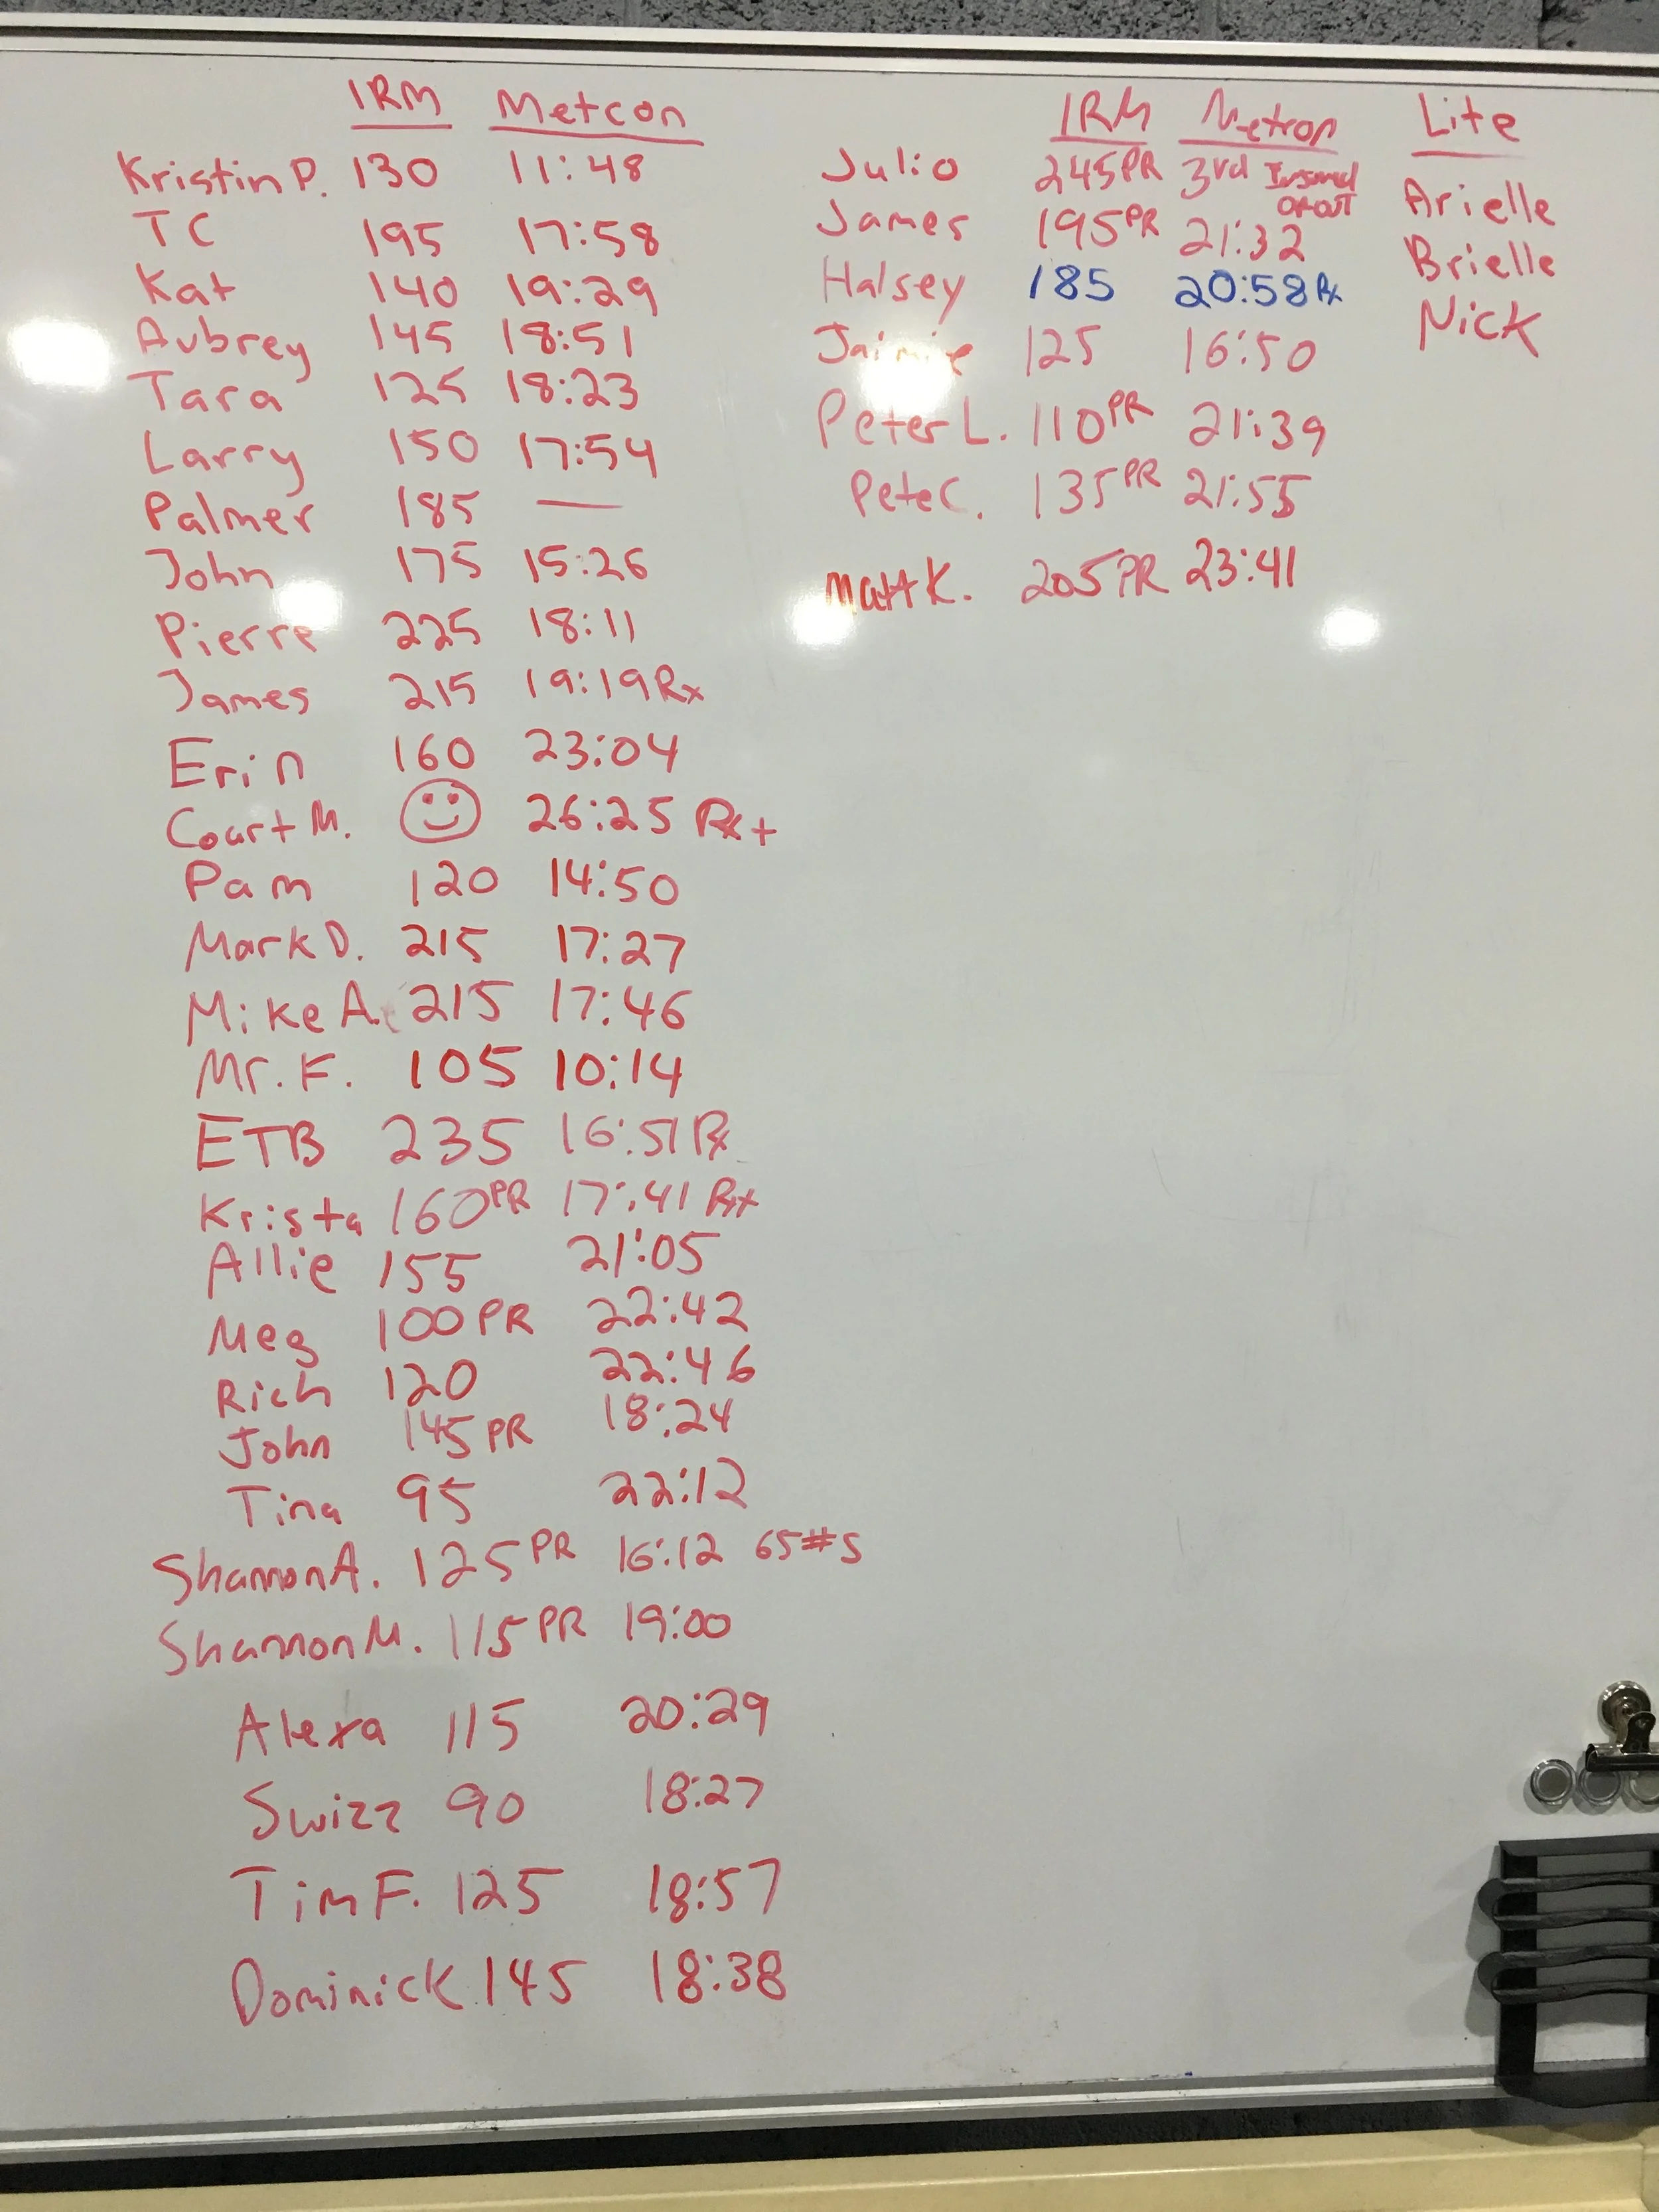 1RM Metcon
Kristin P. 130 11:48
TC 195 17:58
Kat 140 19:29
Aubrey 145 18:51
Tara 125 18:23
Larry 150 17:54
Palmer 185 —
John 175 15:26
Pierre 225 18:11
James 215 19:19 Rx
Erin 160 23:04
Court M. 26:25 Rx+
Pam 120 14:50
Mark D. 215 17:27
Mike A. 215 17:46
Mr. F. 105 10:14
ETB 235 16:51 Rx
Krista 160 PR 17:41 Rx
Allie 155 21:05
Meg 100 PR 22:42
Rich 120 22:46
John 145 PR 18:24
Tina 95 22:12
Shannon A. 125 PR 16:12 65#s
Shannon M. 115 PR 19:00
Alexa 115 20:29
Swizz 90 18:27
Tim F. 125 18:57
Dominick 145 18:38
1RM Metcon
Julio 245 PR 3rd
James 195 PR 21:32
Halsey 185 20:58 Rx
Jaimie 125 16:50
Peter L. 110 PR 21:39
Pete C. 135 PR 21:55
Matt K. 205 PR 23:41
Lite
Arielle
Brielle
Nick